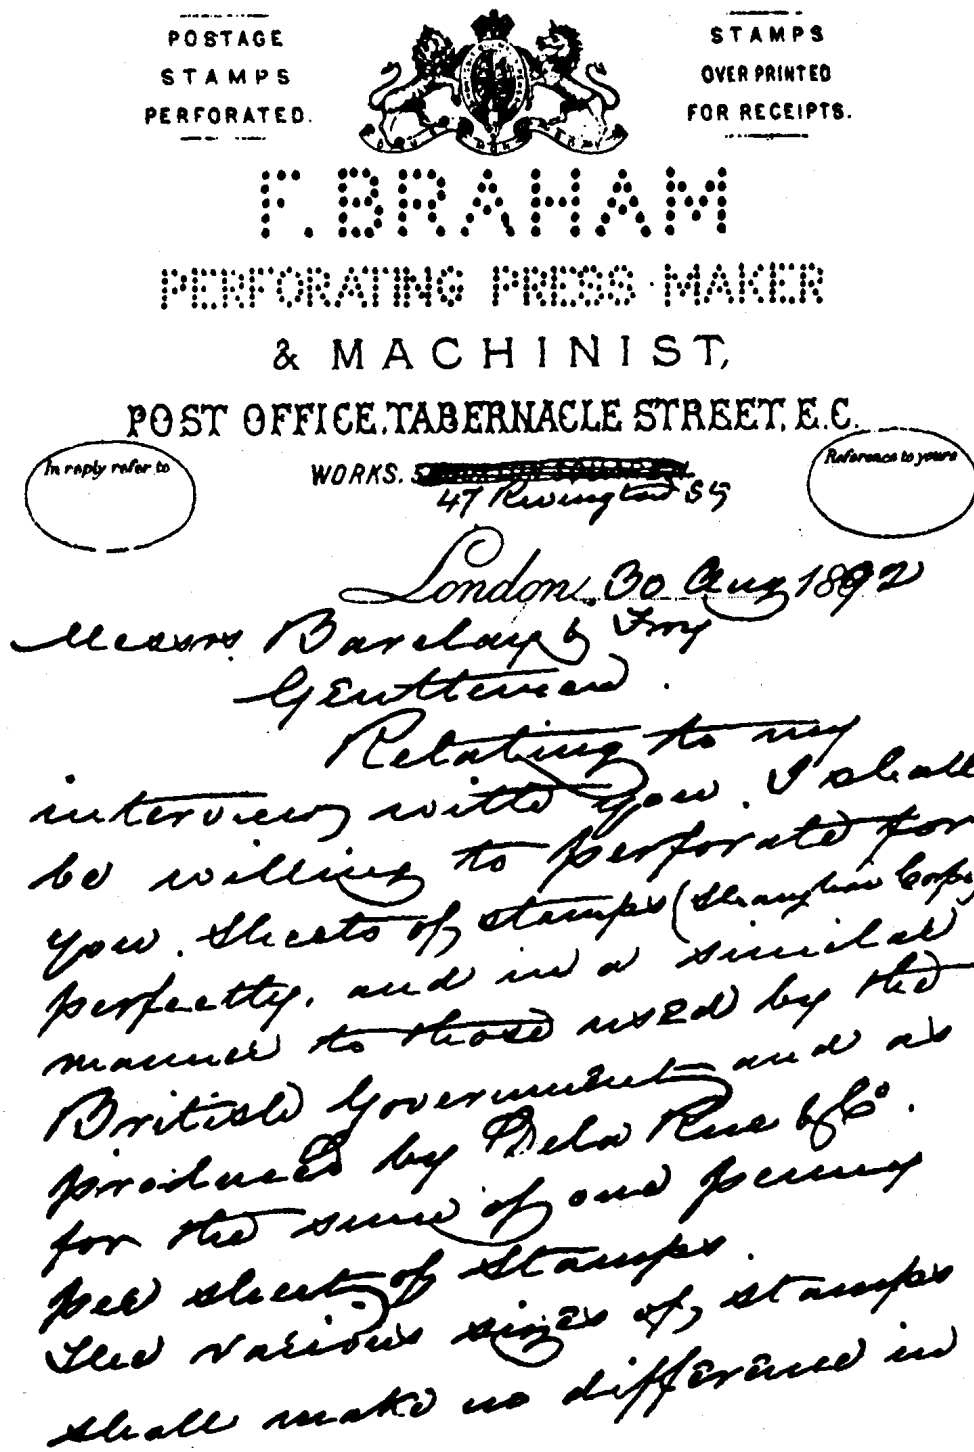 POSTAGE
STAMPS
PERFORATED.
STAMPS
OVERPRINTED
FOR RECEIPTS.
F. BRAHAM
PERFORATING PRESS MAKER
& MACHINIST,
POST OFFICE, TABERNACLE STREET, E.C.
In reply refer to
WORKS.
47 Rivington St
Reference to yours
London, 30 Aug 1892
Messrs. Barclay & Fry
Gentlemen.
Relating to my
interview with you. I shall
be willing to perforate for
you. Sheets of stamps (Shanghai Corpn
perfectly. and in a similar
manner to those used by the
British Government and as
produced by Dela Rue & Co.
for the sum of one penny
per sheet of Stamps.
The various sizes of stamps
shall make no difference in